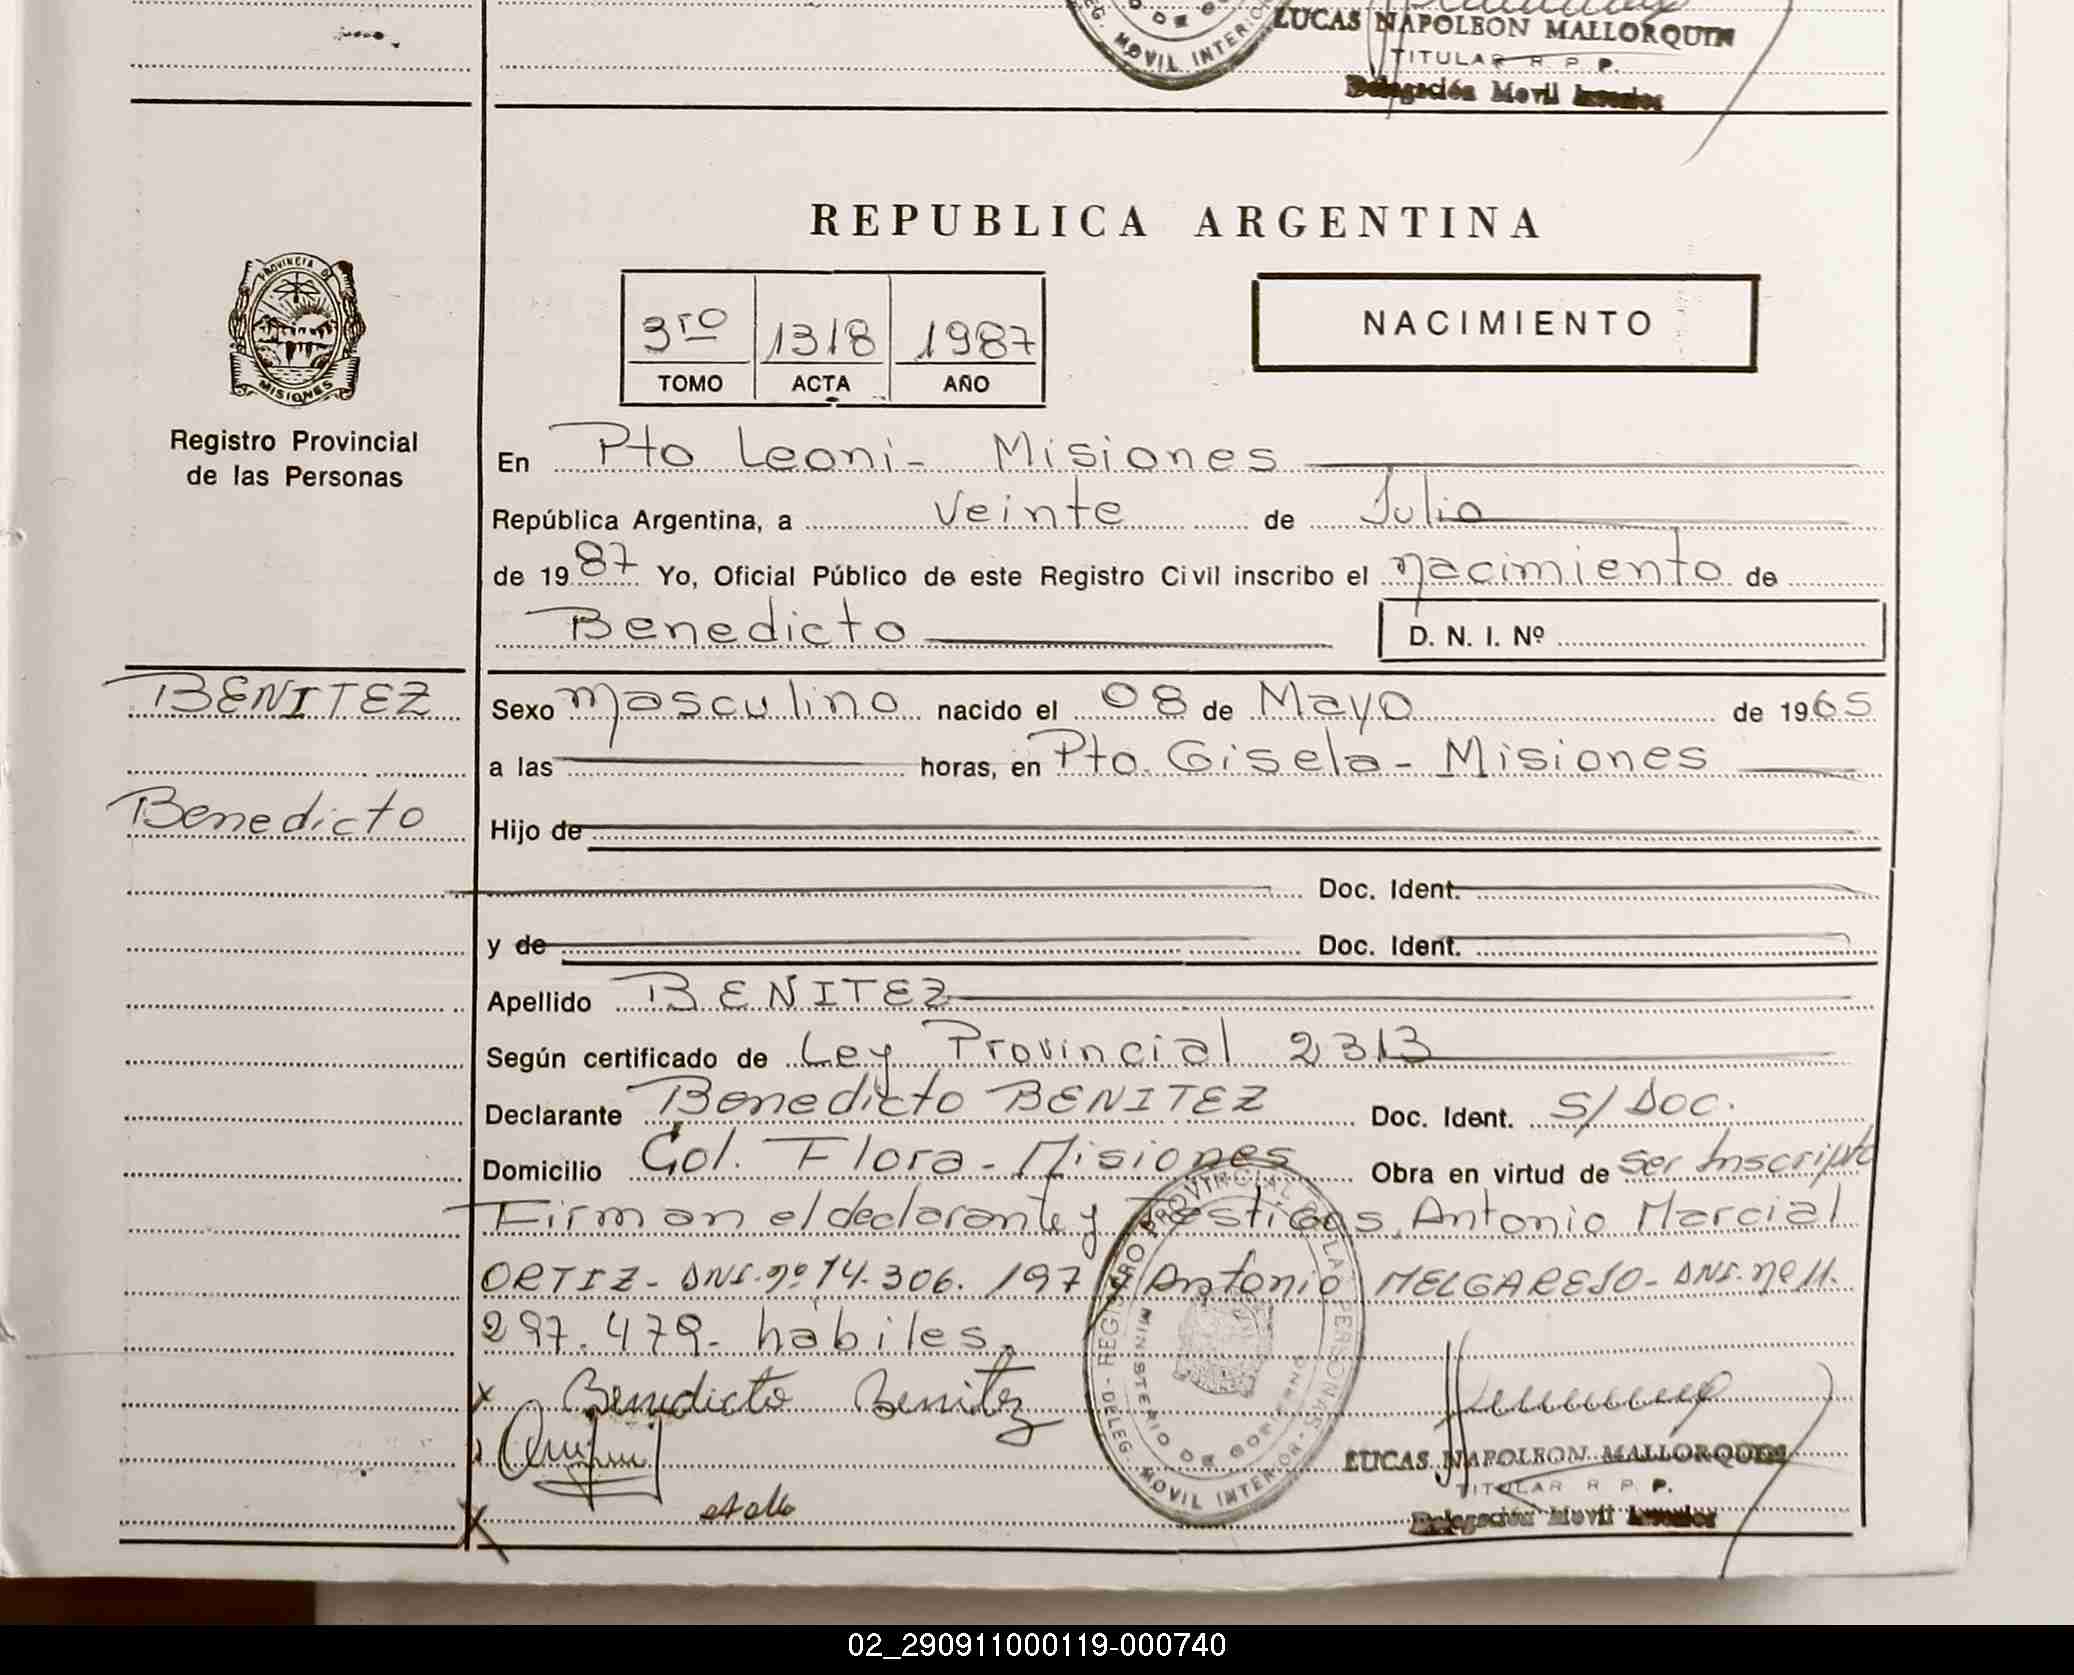 DELEG. MOVIL INTERIOR
LUCAS NAPOLEON MALLORQUIN
TITULAR R. P. P.
Delegación Movil Interior
REPUBLICA ARGENTINA
PROVINCIA DE
MISIONES
3ro 1318 1987
TOMO ACTA AÑO
NACIMIENTO
Registro Provincial
de las Personas
En Pto Leoni - Misiones
República Argentina, a veinte de Julio
de 1987 Yo, Oficial Público de este Registro Civil inscribo el nacimiento de
Benedicto D. N. I. Nº
BENITEZ
Benedicto
Sexo masculino nacido el 08 de Mayo de 1965
a las horas, en Pto. Gisela - Misiones
Hijo de
Doc. Ident.
y de Doc. Ident.
Apellido BENITEZ
Según certificado de Ley Provincial 2313
Declarante Benedicto BENITEZ Doc. Ident. S/Doc.
Domicilio Col. Flora - Misiones Obra en virtud de ser Inscripto
Firman el declarante y Testigos, Antonio Marcial
ORTIZ - DNI. nº 14.306.197 y Antonio MELGAREJO - DNI. nº 11.
297.479 - habiles.
x Benedicto Benitez
REGISTRO PROVINCIAL DE LAS PERSONAS - DELEG. MOVIL INTERIOR
MINISTERIO DE GOBIERNO
LUCAS NAPOLEON MALLORQUIN
TITULAR R. P. P.
Delegación Movil Interior
X
02_290911000119-000740